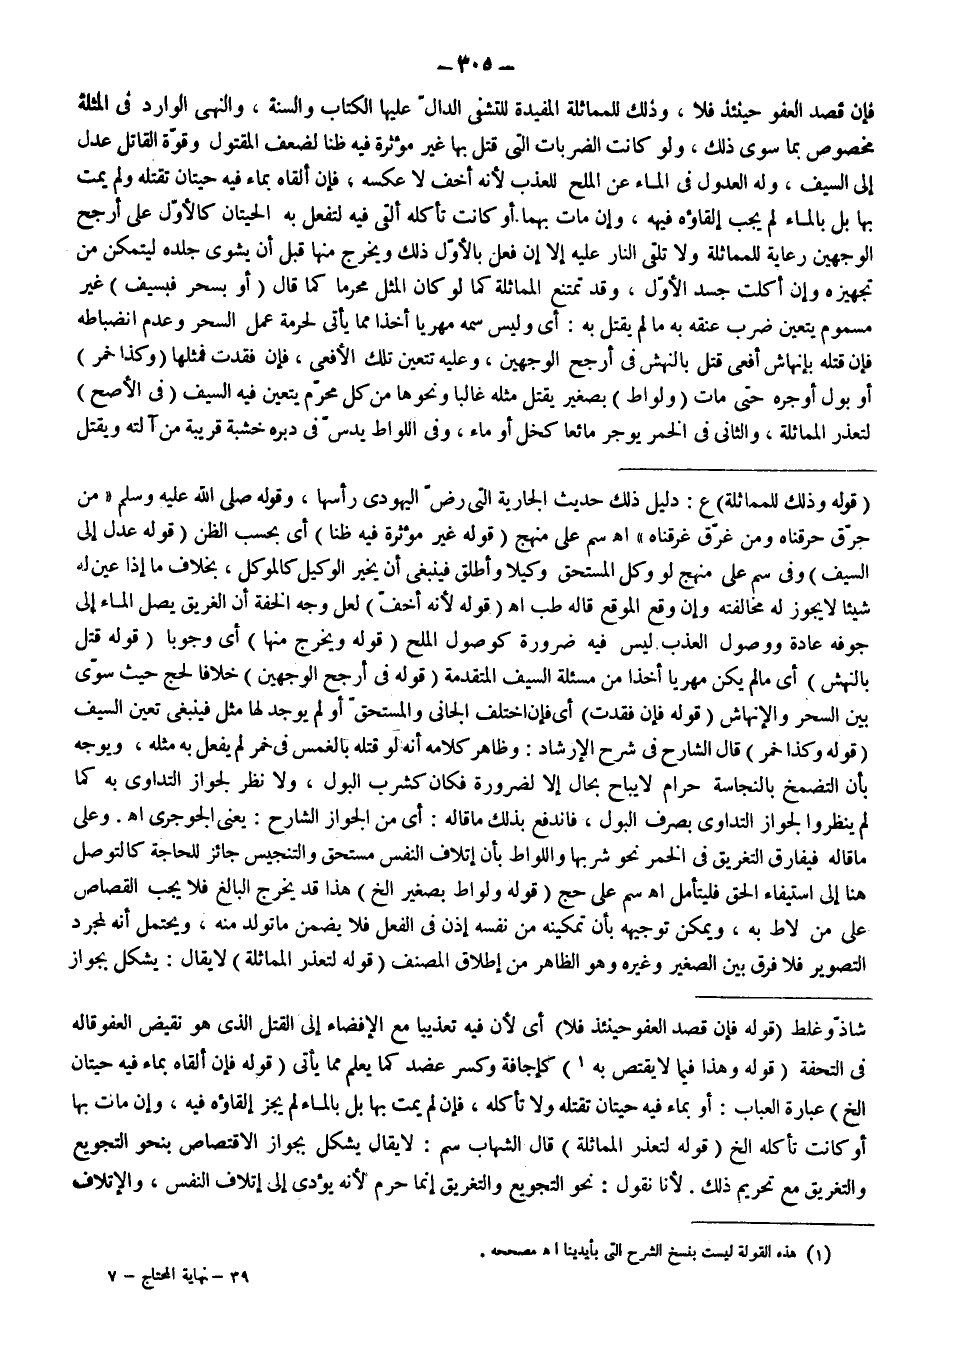 – ٣٠٥ –
فإن قصد العفو حينئذ فلا ، وذلك للمماثلة المفيدة للتشفى الدالّ عليها الكتاب والسنة ، والنهى الوارد فى المثلة
مخصوص بما سوى ذلك ، ولو كانت الضربات التى قتل بها غير مؤثرة فيه ظنا لضعف المقتول وقوّة القاتل عدل
إلى السيف ، وله العدول فى الماء عن الملح للعذب لأنه أخف لا عكسه ، فإن ألقاه بماء فيه حيتان تقتله ولم يمت
بها بل بالماء لم يجب إلقاؤه فيهه ، وإن مات بهما أو كانت تأكله ألقى فيه لتفعل به الحيتان كالأوّل على أرجح
الوجهين رعاية للمماثلة ولا تلقى النار عليه إلا إن فعل بالأوّل ذلك ويخرج منها قبل أن يشوى جلده ليتمكن من
تجهيزه وإن أكلت جسد الأوّل ، وقد تمتنع المماثلة كما لو كان المثل محرما كما قال ( أو بسحر فبسيف ) غير
مسموم يتعين ضرب عنقه به ما لم يقتل به : أى وليس سمه مهريا أخذا مما يأتى لحرمة عمل السحر وعدم انضباطه
فإن قتله بإنهاش أفعى قتل بالنهش فى أرجح الوجهين ، وعليه تتعين تلك الأفعى ، فإن فقدت فمثلها ( وكذا خمر )
أو بول أوجره حتى مات ( ولواط ) بصغير يقتل مثله غالبا ونحوها من كل محرّم يتعين فيه السيف ( فى الأصح )
لتعذر المماثلة ، والثانى فى الخمر يوجر مائعا كخل أو ماء ، وفى اللواط يدسّ فى دبره خشبة قريبة من آلته ويقتل
( قوله وذلك للمماثلة) ع : دليل ذلك حديث الجارية التى رضّ اليهودى رأسها ، وقوله صلى الله عليه وسلم « من
حرّق حرقناه ومن غرّق غرقناه » اه سم على منهج ( قوله غير مؤثرة فيه ظنا ) أى بحسب الظن ( قوله عدل إلى
السيف ) وفى سم على منهج لو وكل المستحق وكيلا وأطلق فينبغى أن يخير الوكيل كالموكل ، بخلاف ما إذا عين له
شيئا لا يجوز له مخالفته وإن وقع الموقع قاله طب اه ( قوله لأنه أخفّ ) لعل وجه الخفة أن الغريق يصل الماء إلى
جوفه عادة ووصول العذب ليس فيه ضرورة كوصول الملح ( قوله ويخرج منها ) أى وجوبا ( قوله قتل
بالنهش ) أى مالم يكن مهريا أخذا من مسئلة السيف المتقدمة ( قوله فى أرجح الوجهين ) خلافا لحج حيث سوّى
بين السحر والإنهاش ( قوله فإن فقدت) أى فإن اختلف الجانى والمستحقّ أو لم يوجد لها مثل فينبغى تعين السيف
( قوله وكذا خمر ) قال الشارح فى شرح الإرشاد : وظاهر كلامه أنه لو قتله بالغمس فى خمر لم يفعل به مثله ، ويوجه
بأن التضمخ بالنجاسة حرام لا يباح بحال إلا لضرورة فكان كشرب البول ، ولا نظر لجواز التداوى به كما
لم ينظروا لجواز التداوى بصرف البول ، فاندفع بذلك ماقاله : أى من الجواز الشارح : يعنى الجوجرى اه . وعلى
ماقاله فيفارق التغريق فى الخمر نحو شربها واللواط بأن إتلاف النفس مستحق والتنجيس جائز للحاجة كالتوصل
هنا إلى استيفاء الحق فليتأمل اه سم على حج ( قوله ولواط بصغير الخ ) هذا قد يخرج البالغ فلا يجب القصاص
على من لاط به ، ويمكن توجيهه بأن تمكينه من نفسه إذن فى الفعل فلا يضمن ماتولد منه ، ويحتمل أنه لمجرد
التصوير فلا فرق بين الصغير وغيره وهو الظاهر من إطلاق المصنف ( قوله لتعذر المماثلة ) لايقال : يشكل بجواز
شاذّ وغلط ( قوله فإن قصد العفو حينئذ فلا) أى لأن فيه تعذيبا مع الإفضاء إلى القتل الذى هو نقيض العفو قاله
فى التحفة ( قوله وهذا فيما لا يقتص به ١ ) كإجافة وكسر عضد كما يعلم مما يأتى ( قوله فإن ألقاه بماء فيه حيتان
الخ ) عبارة العباب : أو بماء فيه حيتان تقتله ولا تأكله ، فإن لم يمت بها بل بالماء لم يجز إلقاؤه فيه ، وإن مات بها
أو كانت تأكله الخ ( قوله لتعذر المماثلة ) قال الشهاب سم : لايقال يشكل بجواز الاقتصاص بنحو التجويع
والتغريق مع تحريم ذلك . لأنا نقول : نحو التجويع والتغريق إنما حرم لأنه يؤدى إلى إتلاف النفس ، والإتلاف
(١) هذه القولة ليست بنسخ الشرح التى بأيدينا اه مصححه .
٣٩ – نهاية المحتاج – ٧